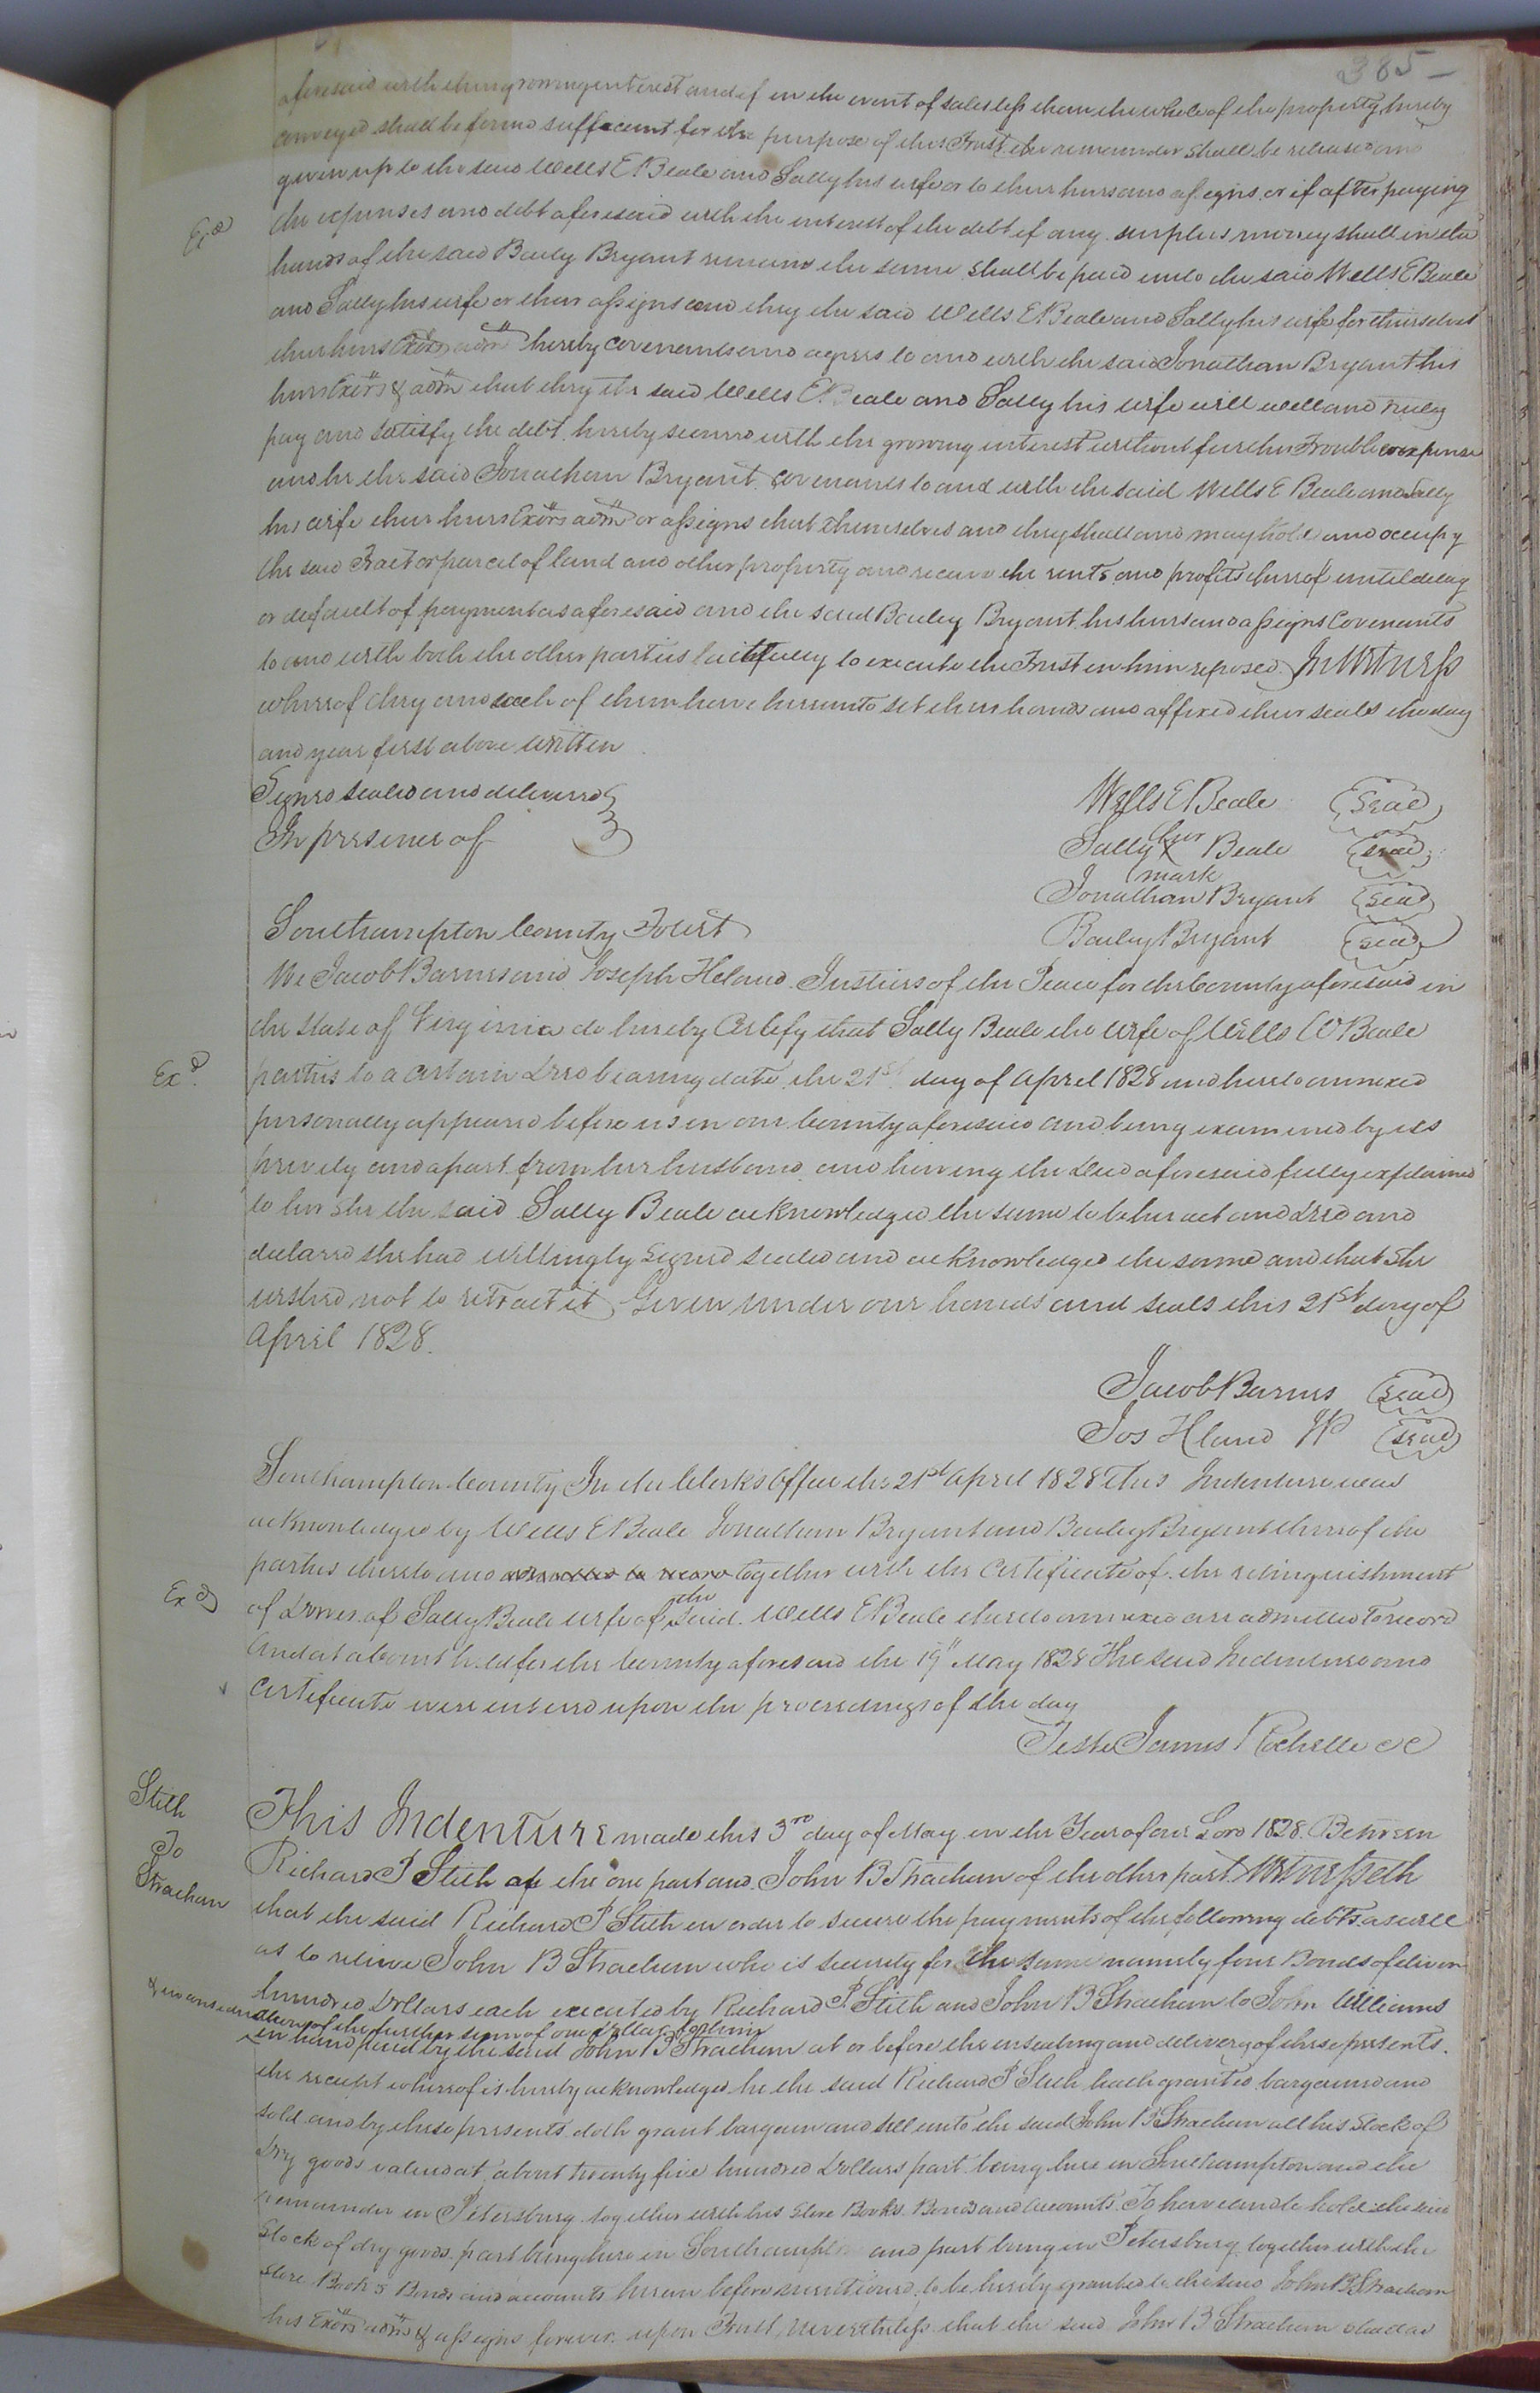 385
aforesaid with the growing interest and if in the event of sale less than the whole of the property hereby
conveyed shall be found suffecient for the purpose of this Trust the remainder shall be released and
given up to the said Wells E Beale and Sally his wife or to their heirs and assigns or if after paying
Exd
the expenses and debt aforesaid with the interest of the debt if any surplus money shall in the
hands of the said Bailey Bryant remain the same shall be paid unto the said Wells E Beale
and Sally his wife or their assigns and they the said Wells E Beale and Sally his wife for themselves
their heirs Exors adm hereby covenants and agrees to and with the said Jonathan Bryant his
heirs Exors & adm that they the said Wells E. Beale and Sally his wife will well and truly
pay and satisfy the debt hereby secured with the growing interest without further Trouble or expense
and he the said Jonathan Bryant covenants to and with the said Wells E Beale and Sally
his wife their heirs Exors adm or assigns that themselves and they shall and may hold and occupy
the said Tract or parcel of land and other property and receive the rents and profits thereof until delay
or default of payment as aforesaid and the said Bailey Bryant his heirs and assigns Covenants
to and with both the other parties faithfully to execute the Trust in him reposed In Witness
whereof they and each of them have hereunto set their hands and affixed their seals the day
and year first above written
Signed sealed and delivered
In presence of
Wells E Beale seal
Sally her Beale seal
X mark
Jonathan Bryant seal
Bailey Bryant seal
Southampton County Towit
We Jacob Barnes and Joseph Holand Justices of the Peace for the County aforesaid in
the State of Virginia do hereby Certify that Sally Beale the wife of Wills W Beale
Exd
parties to a certain Deed bearing date the 21st day of April 1828 and hereto annexed
personally appeared before us in our County aforesaid and being examined by us
privily and apart from her husband and having the Deed aforesaid fully explained
to her she the said Sally Beale acknowledged the same to be her act and deed and
declared she had willingly signed sealed and acknowledged the same and that she
wished not to retract it Given under our hands and seals this 21st day of
April 1828.
Jacob Barnes seal
Jos Hland JP seal
Southampton County In the Clerks Office the 21st April 1828 This Indenture was
acknowledged by Wells E Beale Jonathan Bryant and Bailey Bryant thereof the
parties thereto and admitted to record together with the Certificate of the relinquishment
Exd
of Dower of Sally Beale wife of the said Wells E Beale thereto annexed are admitted To record
And at a Court held for the County aforesaid the 19th May 1828 The said Indenture and
certificate were entered upon the proceedings of the day
Teste James Rochelle CC
Stith
To
Strachan
This Indenture made this 3rd day of May in the Year of our Lord 1828. Between
Richard P Stith of the one part and John B Strachan of the other part Witnesseth
that the said Richard P Stith in order to secure the payments of the following debts as well
as to relieve John B Strachan who is security for the same namely four Bonds of eleven
hundred Dollars each executed by Richard P. Stith and John B Strachan to John Williams
& in consideration of the further sum of one dollar to him
in hand paid by the said John B Strachan at or before the ensealing and delivery of these presents.
the receipt whereof is hereby acknowledged he the said Richard P Stith hath granted bargained and
sold and by these presents doth grant bargain and sell unto the said John B Strachan all his stock of
Dry goods valued at about twenty five hundred Dollars part being here in Southampton and the
remainder in Petersburg together with his Store Books Bonds and accounts. To have and to hold the said
Stock of dry goods part being here in Southampton and part being in Petersburg together with the
Store Books Bonds and accounts herein before mentioned to be hereby granted to the said John B Strachan
his Exors adms & assigns forever upon Trust nevertheless that the said John B Strachan